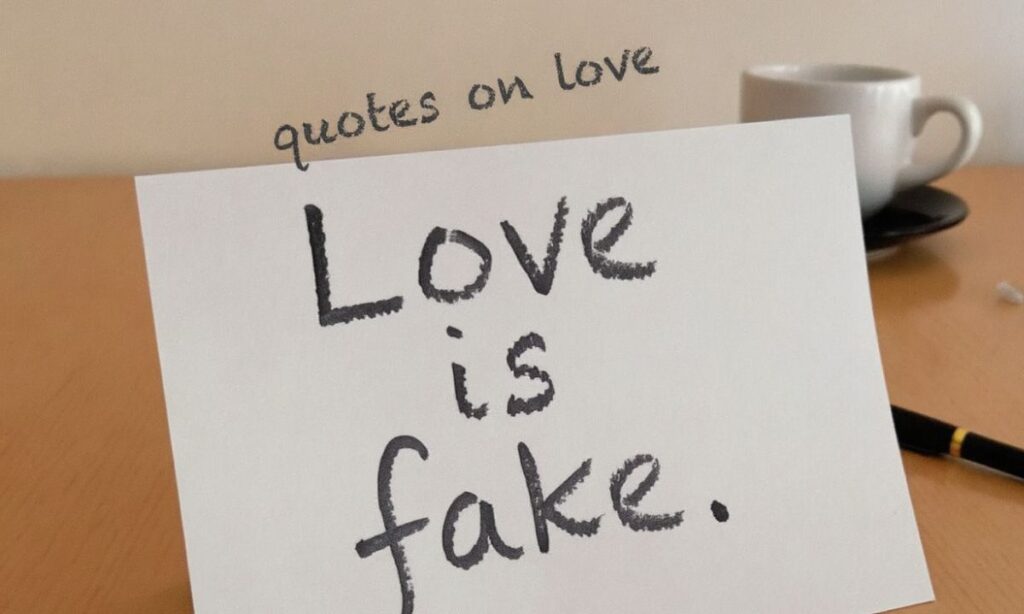 quotes on love
Love
is
fake.